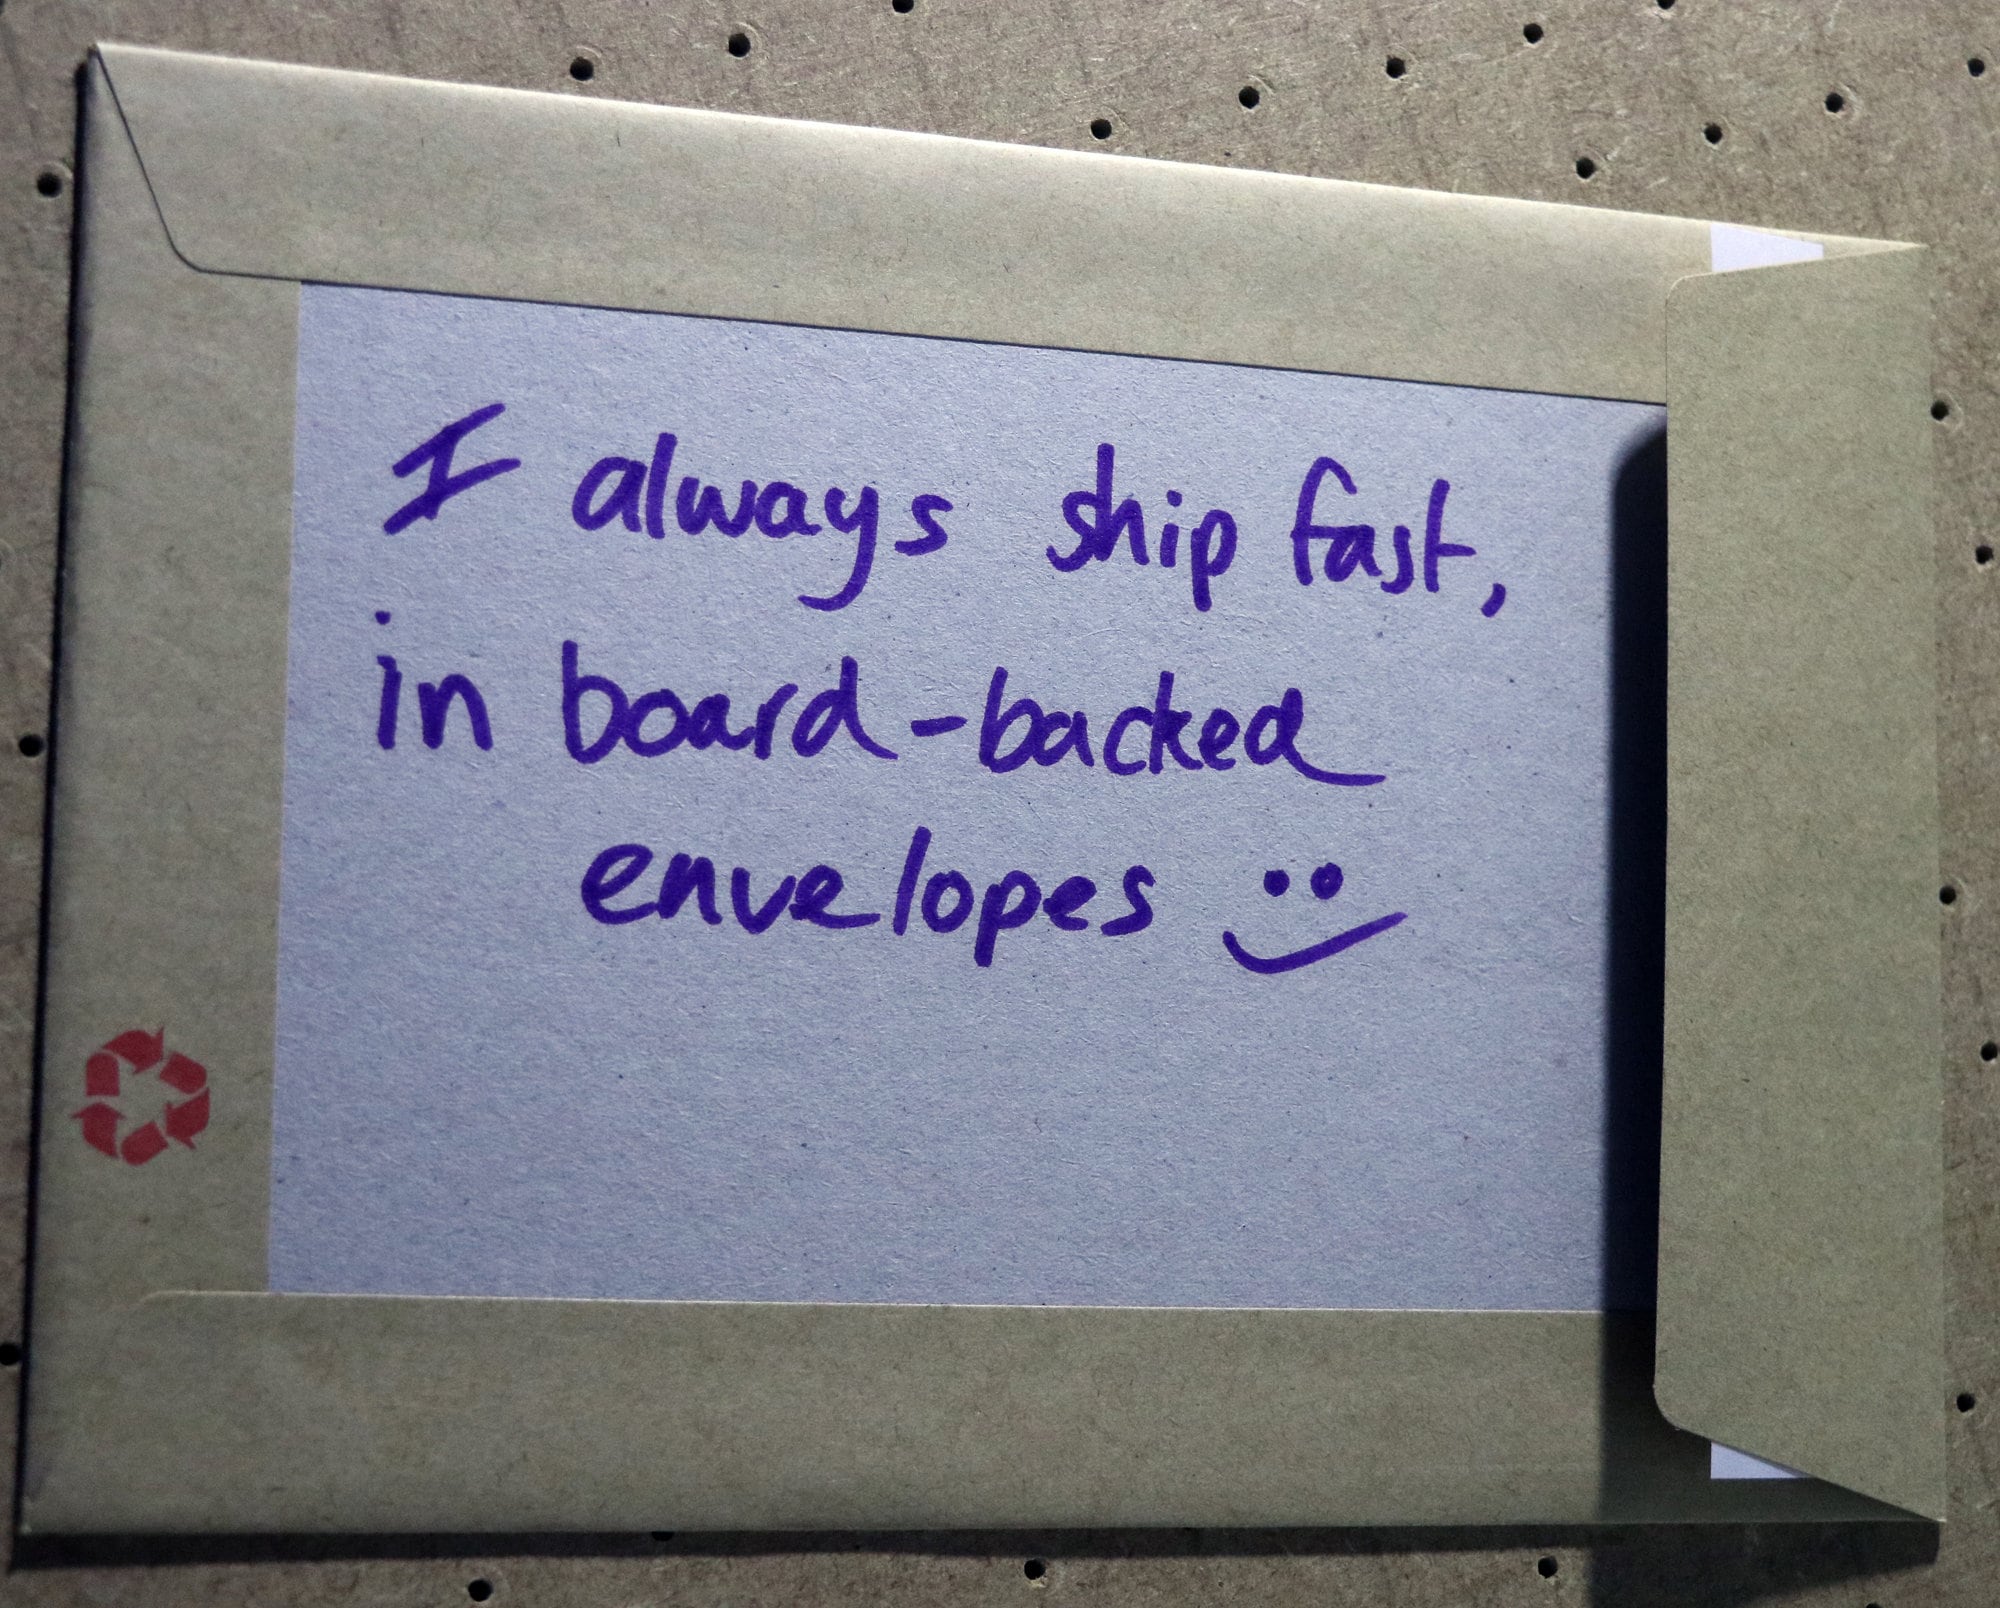 I always ship fast,
in board-backed
envelopes